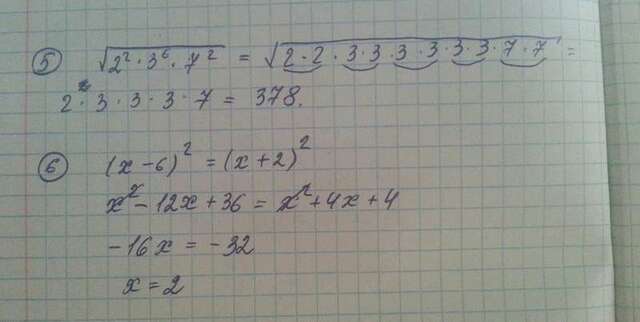 5 √(2² · 3⁶ · 7²) = √(2 · 2 · 3 · 3 · 3 · 3 · 3 · 3 · 7 · 7) =
2 · 3 · 3 · 3 · 7 = 378.
6 (x - 6)² = (x + 2)²
x² - 12x + 36 = x² + 4x + 4
-16x = -32
x = 2